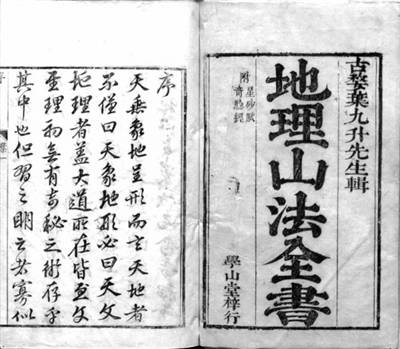 古婺葉九升先生輯
地理山法全書
附
星砂賦
奇驗經
學山堂梓行
序
天垂象地呈形而言天地者
不僅曰天象地形必曰天文
地理者蓋大道所在皆至文
至理初無有奇秘之術存乎
其中也但習之明云者寡似